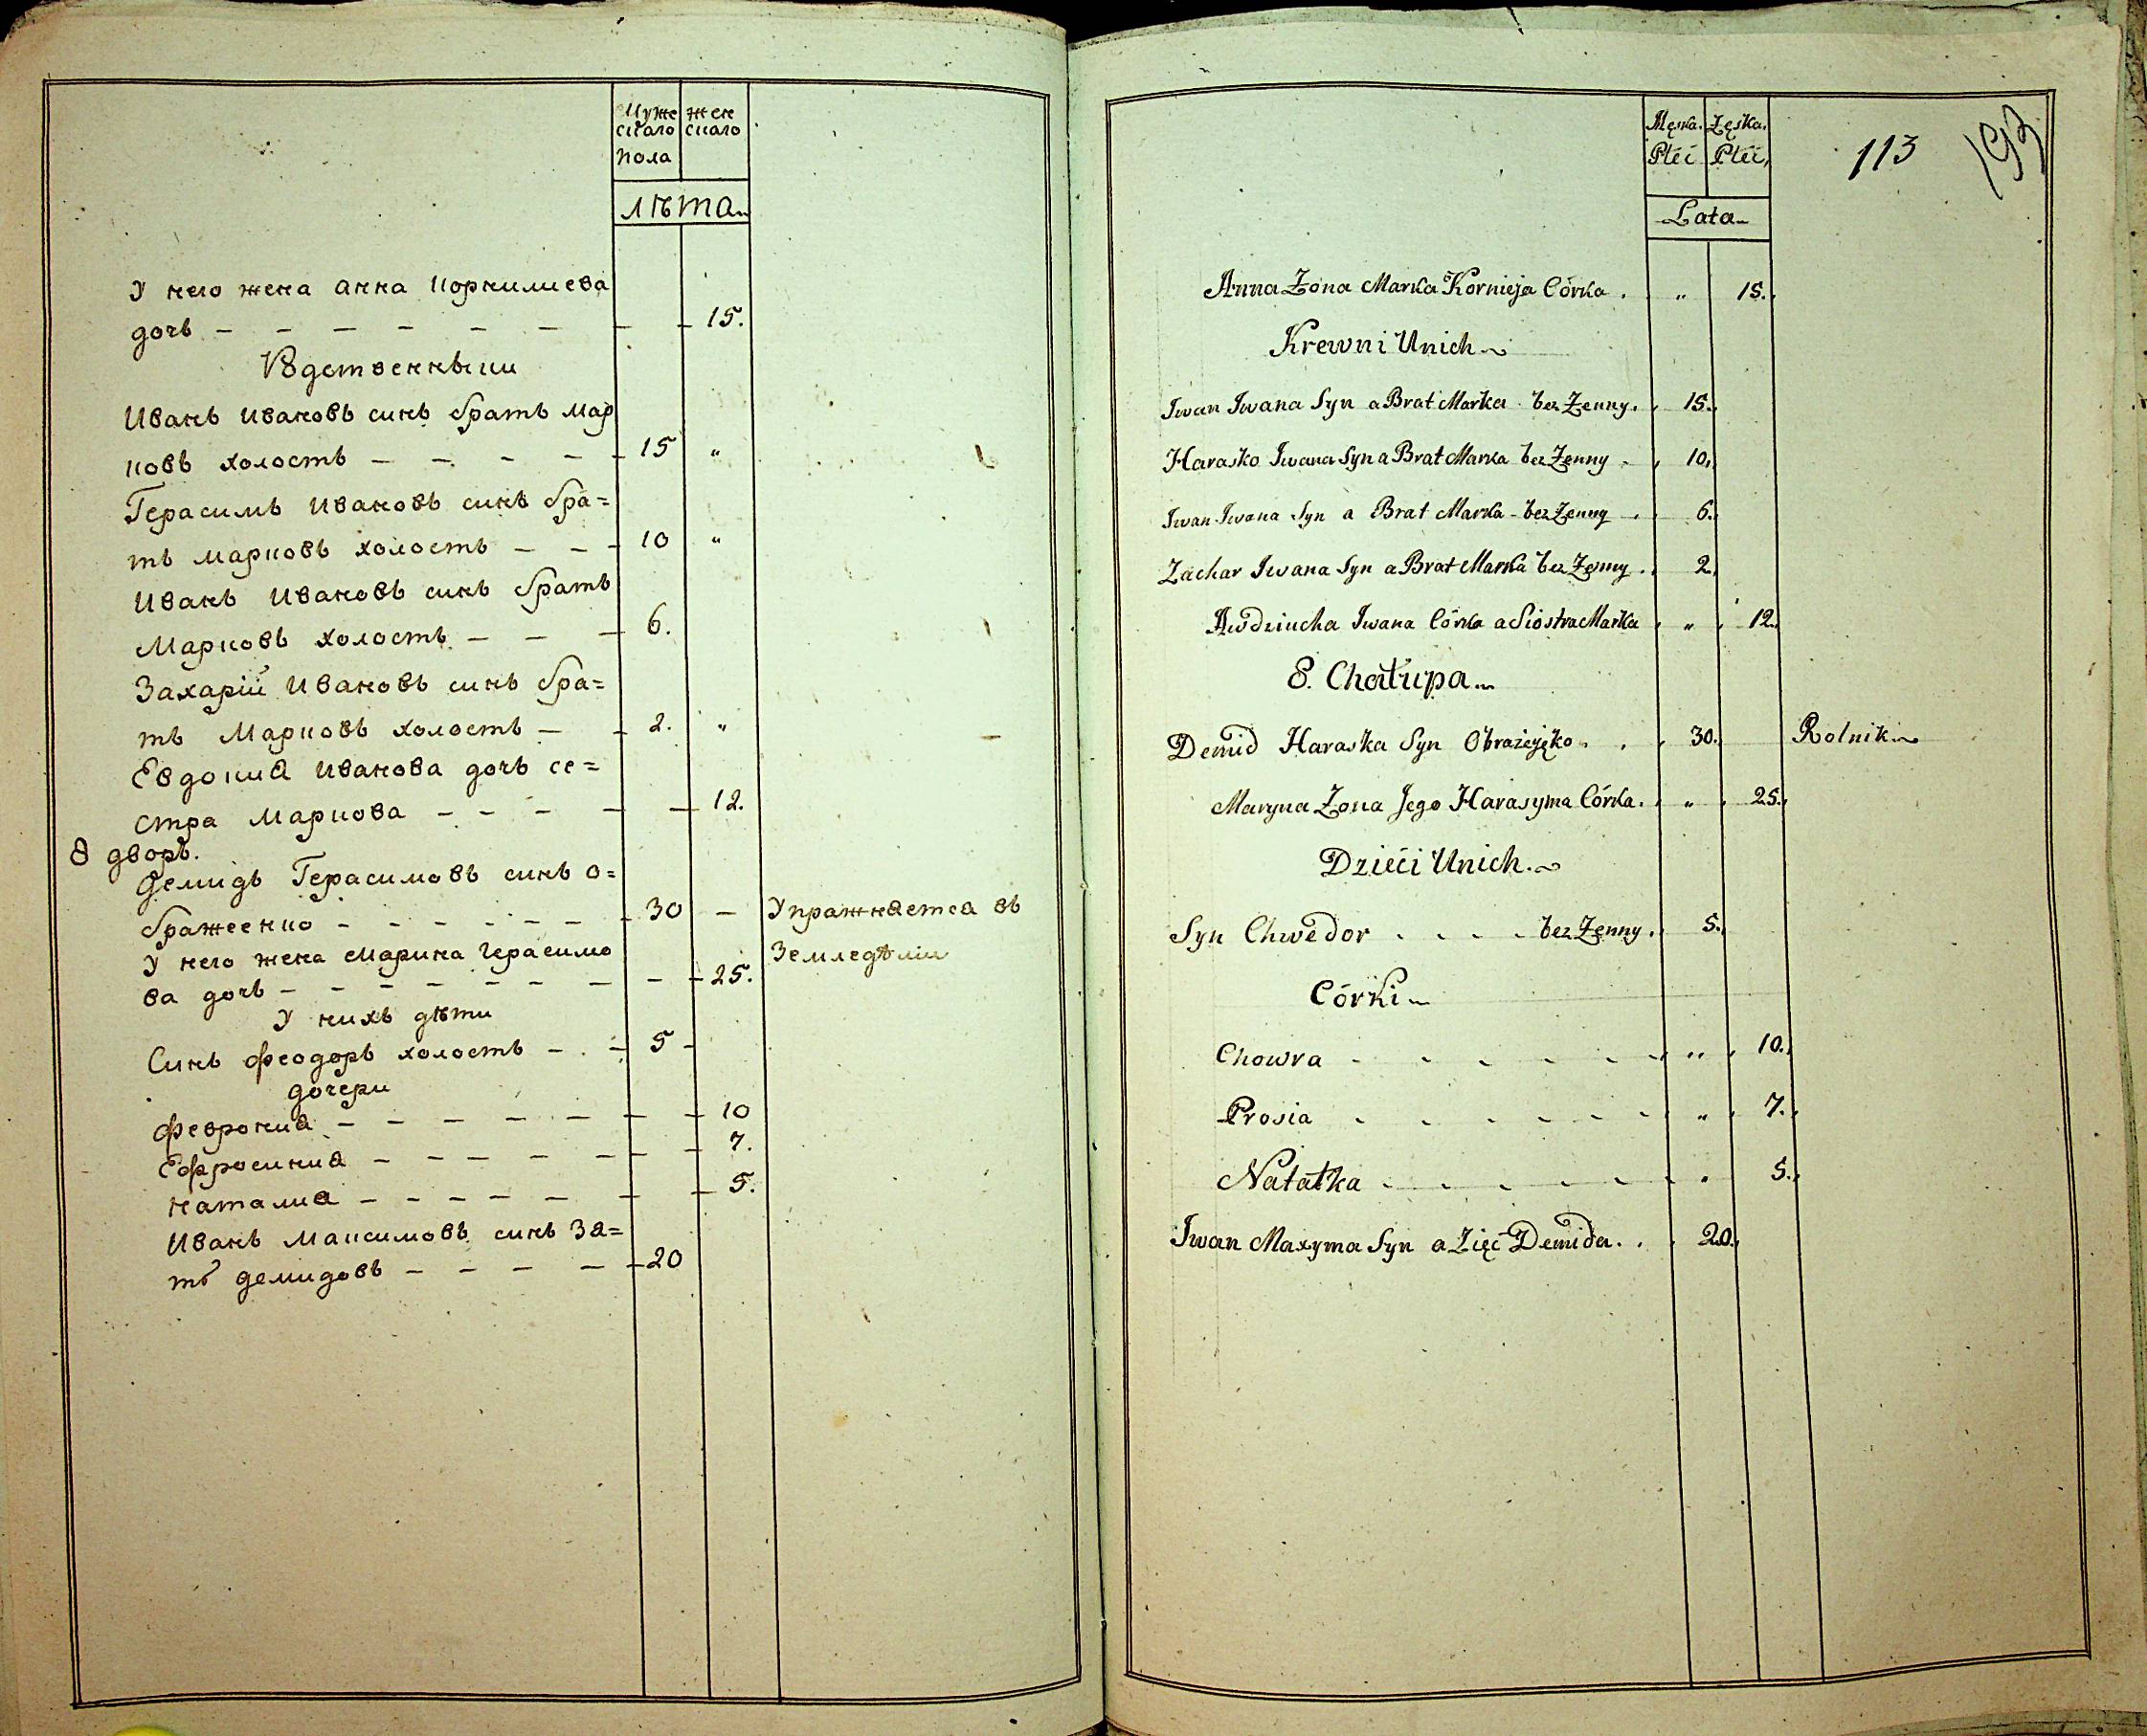 Муже жен
скаго скаго
пола
лѣта
У него жена анна корнилиева
дочь — — — — — — — — 15.
Ивань ивановь синь брать мар
ковь холость — — — — 15 „
Герасимь ивановь синь бра=
ть марковь холость — — — 10 „
Ивань Ивановь синь брать
Марковь холость — — — 6.
Захарій Ивановь синь бра=
ть Марковь холость — — 2. „
Евдокиа иванова дочь се=
стра Маркова — — — — — 12.
8 дворь.
Демидь Герасимовь синь о=
бражеенко — — — — — — 30 — Упражняетса вь
У него жена Марина герасимо
Земледѣліи
ва дочь — — — — — — — — 25.
У нихь дѣти
Синь феодорь холость — . — 5 —
дочери
феврониа — — — — — — — 10
Ефросиниа — — — — — — — 7.
наталиа — — — — — — — 5.
Ивань Максимовь синь зя=
ть демидовь — — — — — 20
Męska. Zęska.
Płeć Płeć,
Lata
113
193
Anna Żona Marka Kornieja Córka . „ 15.
Krewni Unich
Iwan Iwana Syn a Brat Marka bez Żenny. 15.
Harasko Iwana Syn a Brat Marka bez Żenny 10.
Iwan Iwana Syn a Brat Marka bez Żenny 6.
Zachar Iwana Syn a Brat Marka bez Żenny. 2.
Awdziucha Iwana Córka a Siostra Marka „ 12.
8. Chałupa
Demid Haraska Syn Obrażejęko . . 30. Rolnik
Maryna Żona Jego Harasyma Córka. „ 25.
Dzieći Unich.
Syn Chwedor . . . . bez Żenny. 5.
Córki
Chowra - - - - - - „ 10.
Prosia - - - - - - „ 7.
Natałka - - - - - - „ 5.
Iwan Maxyma Syn a Zięć Demida. . 20.